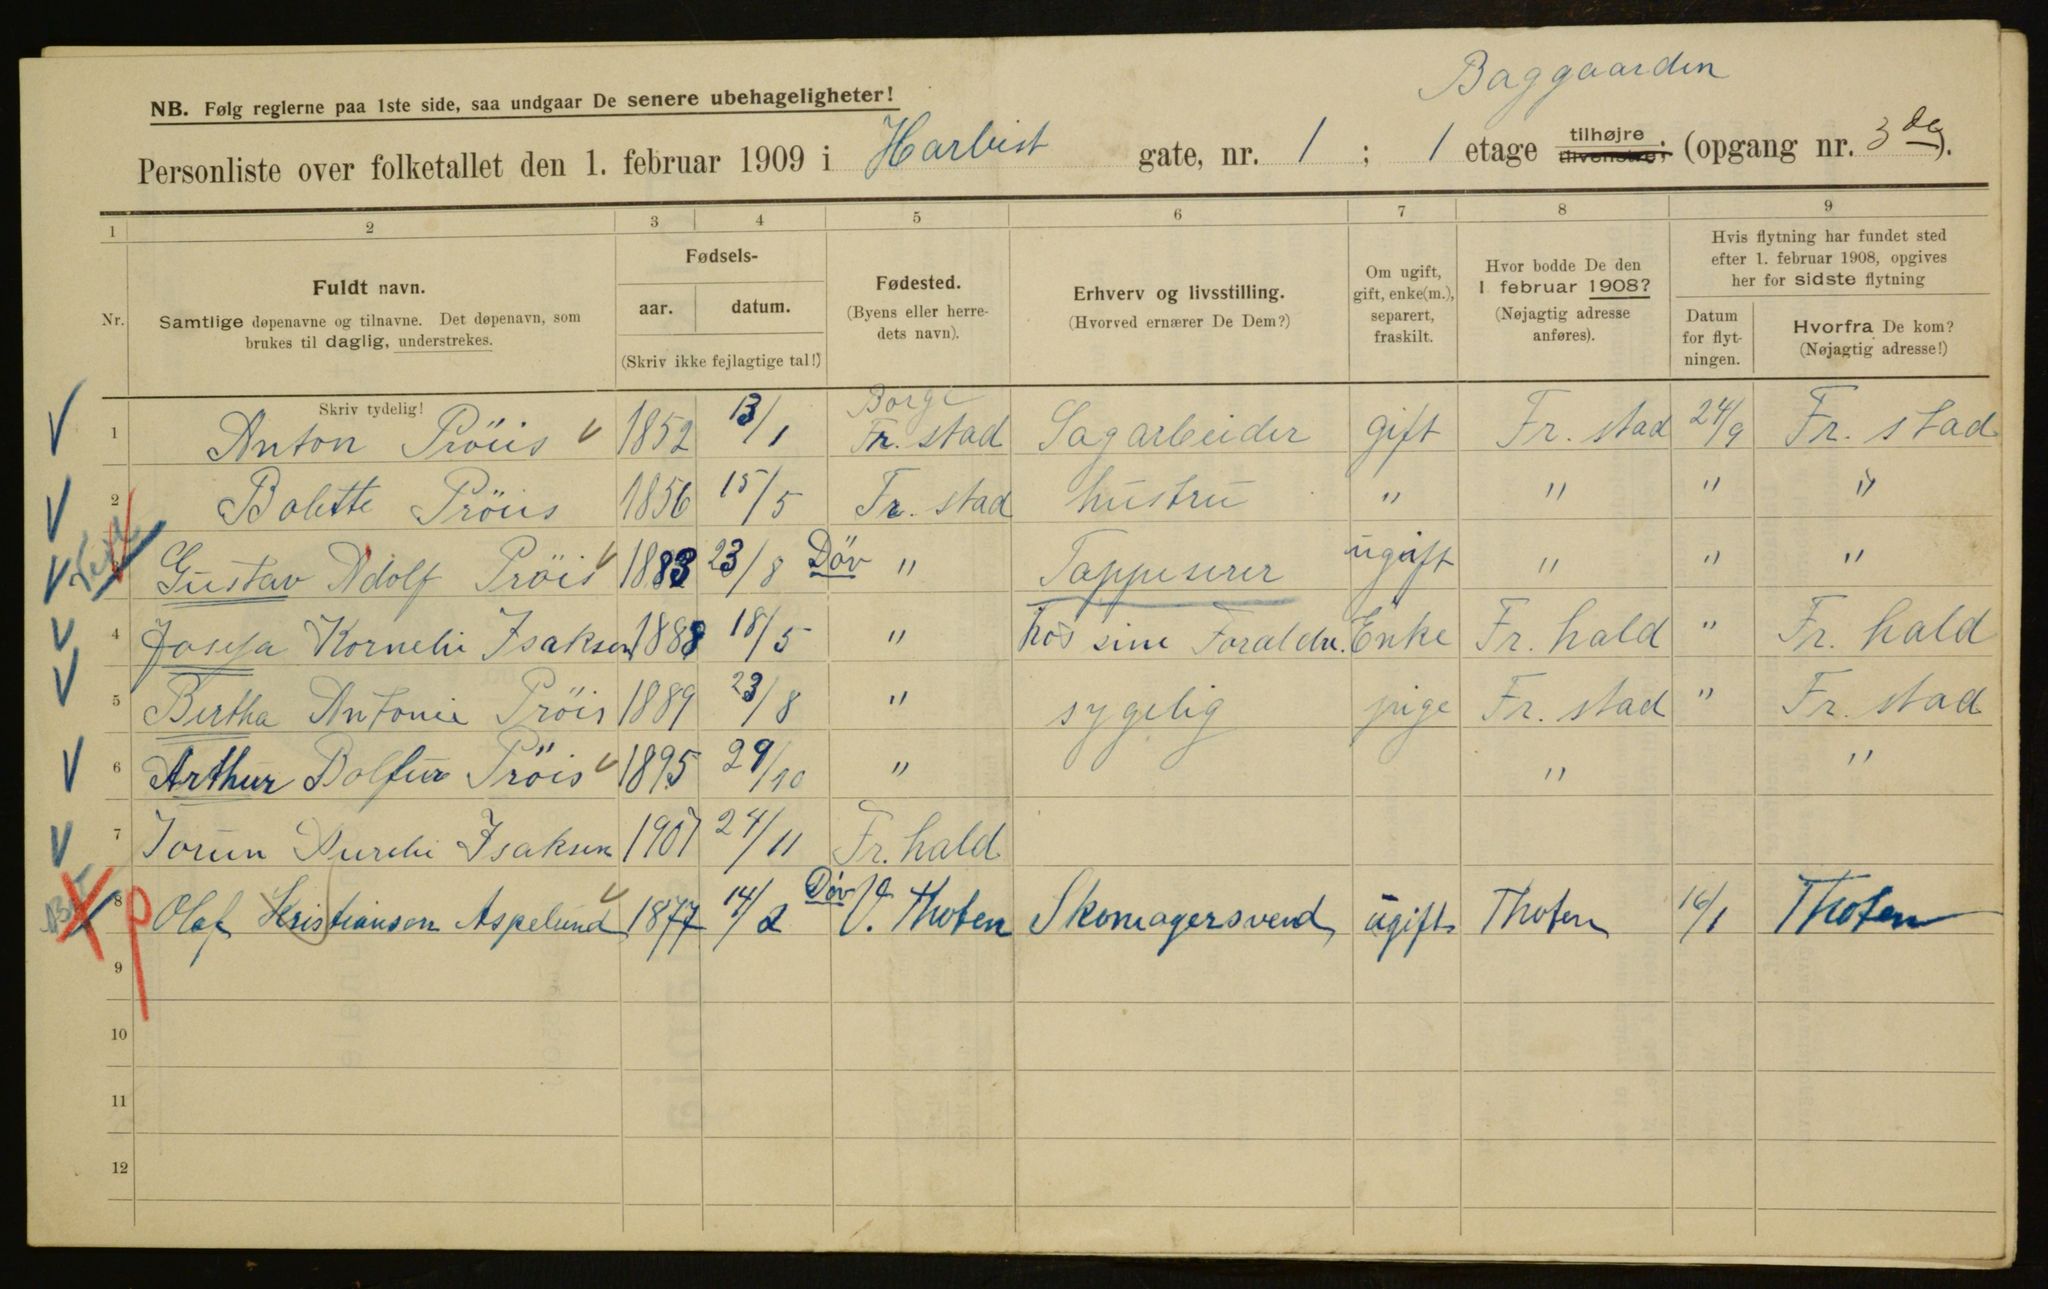 Baggaarden
NB. Følg reglerne paa 1ste side, saa undgaar De senere ubehageligheter!
Personliste over folketallet den 1. februar 1909 i Harbist gate, nr. 1 ; 1 etage tilhøjre tilvenstre; (opgang nr. 3 de).
1 2 3 4 5 6 7 8 9
Nr.
Fuldt navn.
Samtlige døpenavne og tilnavne. Det døpenavn, som
brukes til daglig, understrekes.
Skriv tydelig!
Fødsels-
aar. datum.
(Skriv ikke fejlagtige tal!)
Fødested.
(Byens eller herre-
dets navn).
Erhverv og livsstilling.
(Hvorved ernærer De Dem?)
Om ugift,
gift, enke(m.),
separert,
fraskilt.
Hvor bodde De den
1 februar 1908?
(Nøjagtig adresse
anføres).
Hvis flytning har fundet sted
efter 1. februar 1908, opgives
her for sidste flytning
Datum
for flyt-
ningen.
Hvorfra De kom?
(Nøjagtig adresse!)
Borge
1 Anton Pröiis 1852 13/1 Fr. stad Sagarbeider gift Fr. stad 24/9 Fr. stad
2 Bolette Pröiis 1856 15/5 Fr. stad hustru " " " "
3 Gustav Adolf Pröis 1883 23/8 Döv " Tappeserer ugift " " "
4 Josefa Kornelie Isaksen 1888 18/5 " hos sine Foraldre. Enke Fr. hald " Fr. hald
5 Bertha Antonie Pröis 1889 23/8 " sygelig pige Fr. stad " Fr. stad
6 Arthur Bolfur Pröis 1895 29/10 " " "
7 Jorun Aurelie Isaksen 1907 24/11 Fr. hald
8 Olaf Kristianson Aspelund 1877 14/2 Döv V. Thoten Skomagersvend ugift Thoten 16/1 Thoten
9
10
11
12